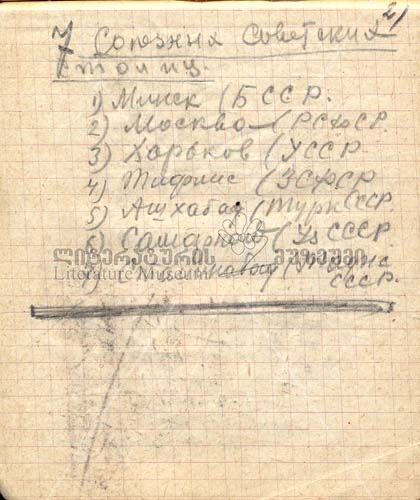 2)
7 Союзних Советских
столиц.
1) Минск (БССР.
2) Москва (РСФСР.
3) Харьков (УССР
4) Тифлис (ЗСФСР
5) Ашхабад (Турк ССР
6) Самарканд (Уз СССР
ლიტერატურის მუზეუმი
Literature Museum
7) (Тадж
СССР.